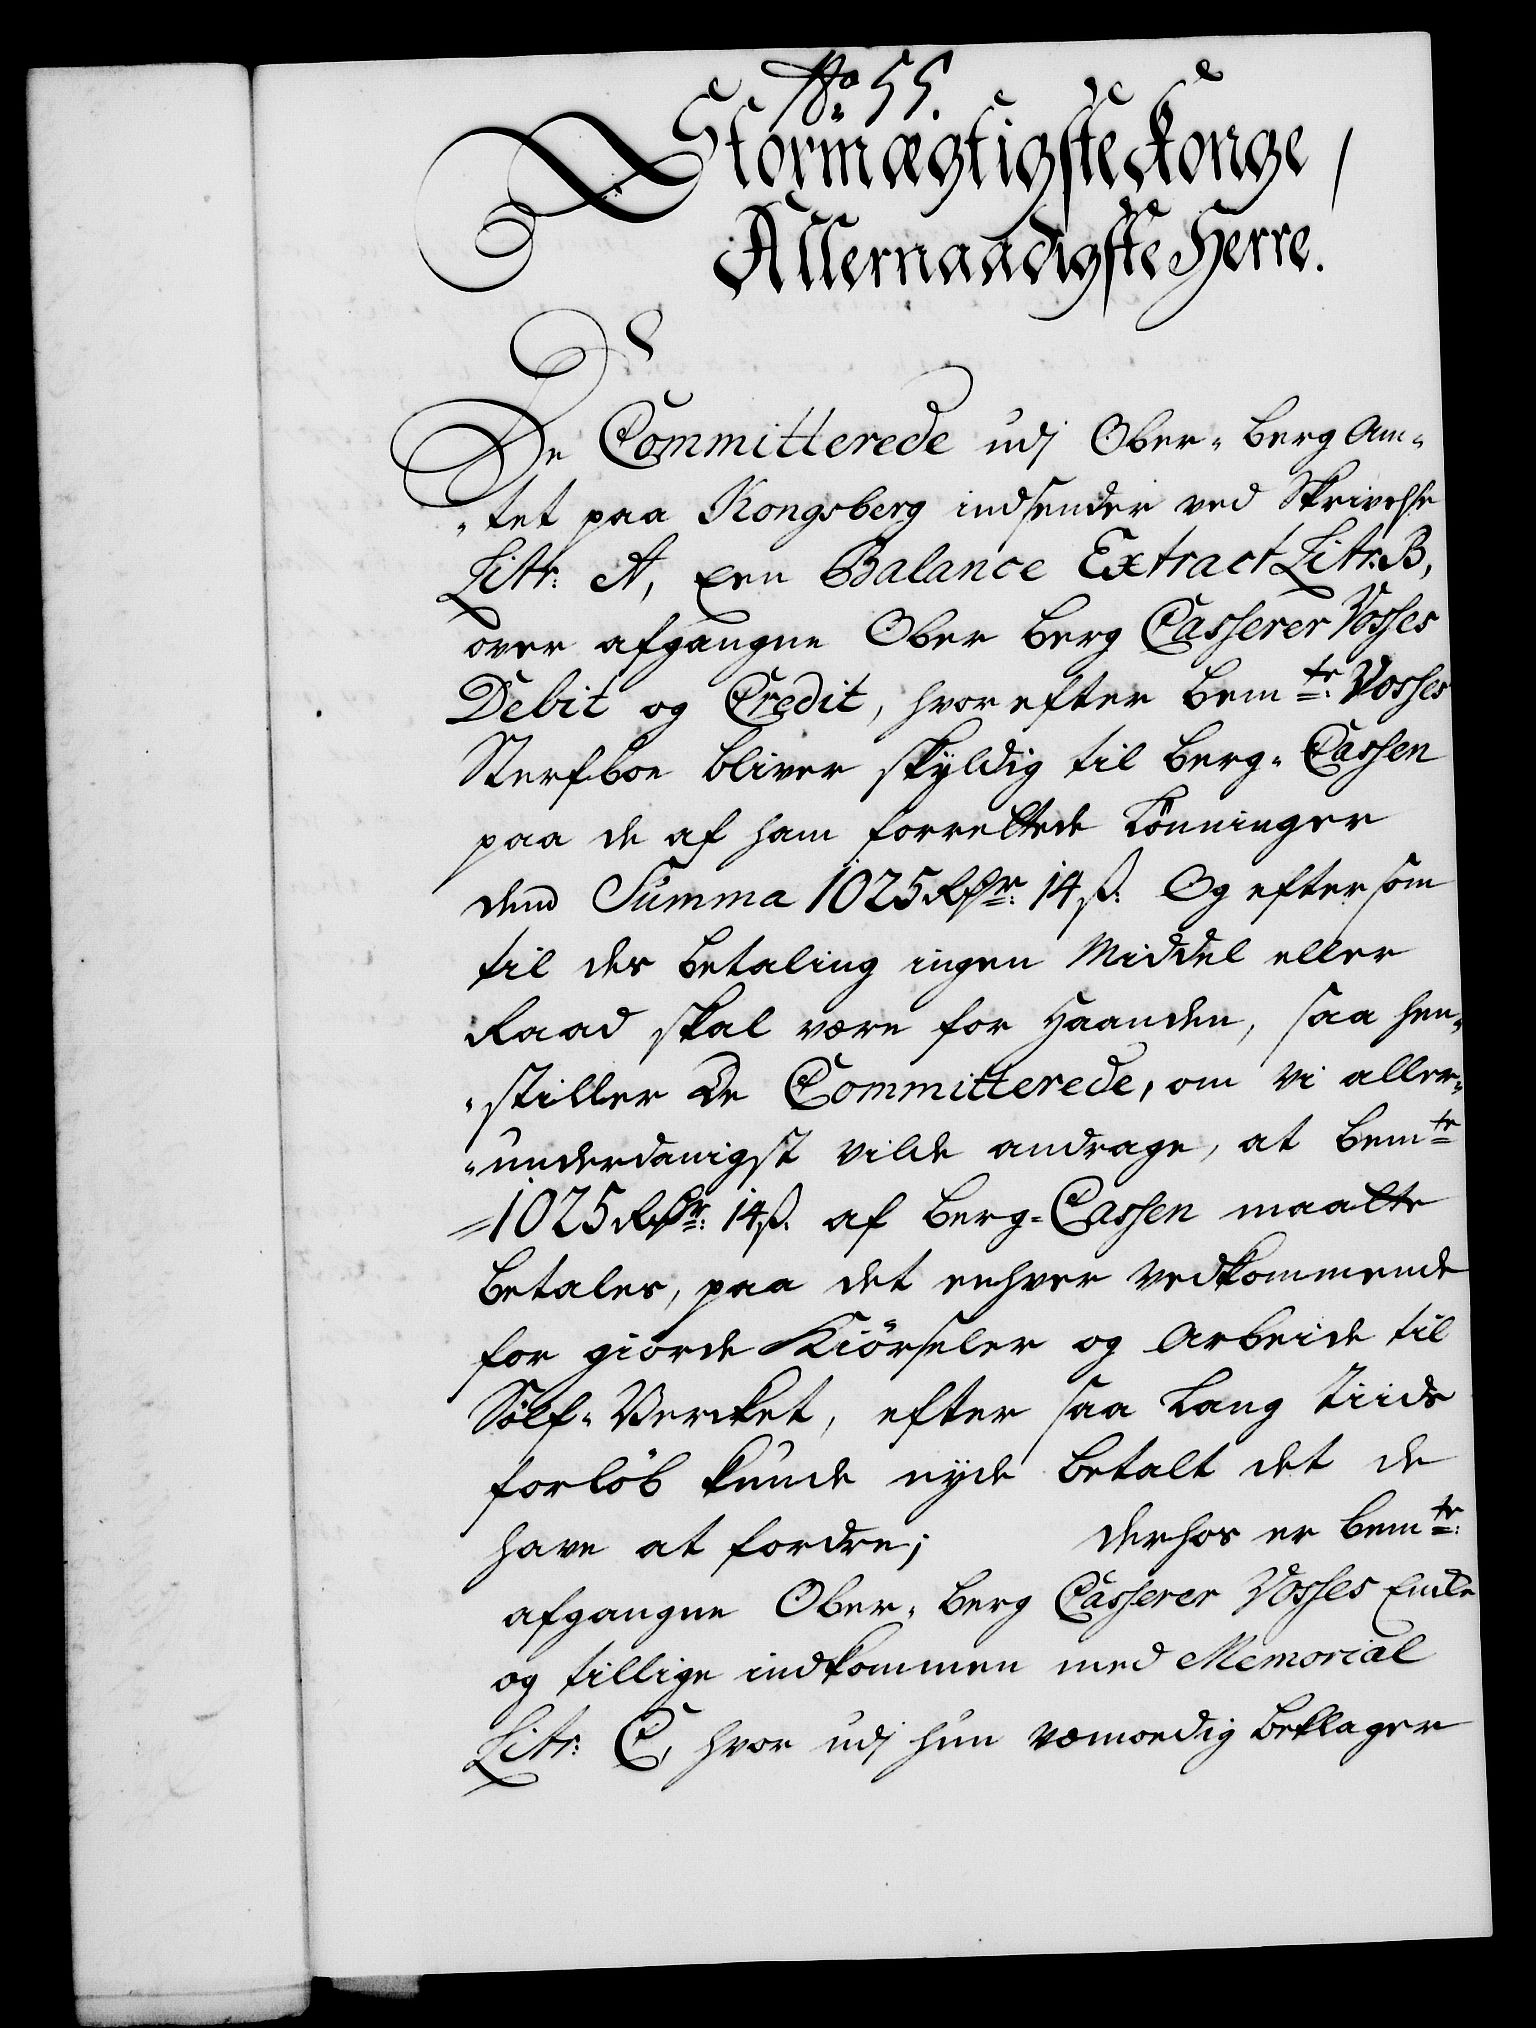 No 55.
Stormægtigste Konge /
Allernaadigste Herre.
De Committerede udj Ober-Berg Am-
-tet paa Kongsberg indsender ved Skrivelse
Litr: A, een Balance Extract Litr: B,
over afgangne Ober Berg Casserer Vosses
Debit og Credit, hvorefter bemte: Vosses
Sterfboe bliver skyldig til Berg-Cassen
paa de af ham forrettede Lönninger
dend Summa 1025 Rdr: 14 ß: Og eftersom
til des Betaling ingen Middel eller
Raad skal være for Haanden, saa hen-
-stiller De Committerede, om vi aller-
-underdanigst vilde andrage, at bemte
1025 Rdr: 14 ß. af Berg-Cassen maatte
betales, paa det enhver vedkommende
for giorde Kiörseler og Arbeide til
Sölf-Vercket, efter saa lang Tiids
forlöb kunde nyde betalt det de
have at fordre; derhos er bemte:
afgangne Ober-Berg Casserer Vosses Encke
og tillige indkommen med Memorial
Litr: C, hvor udj hun vemoedig beklager